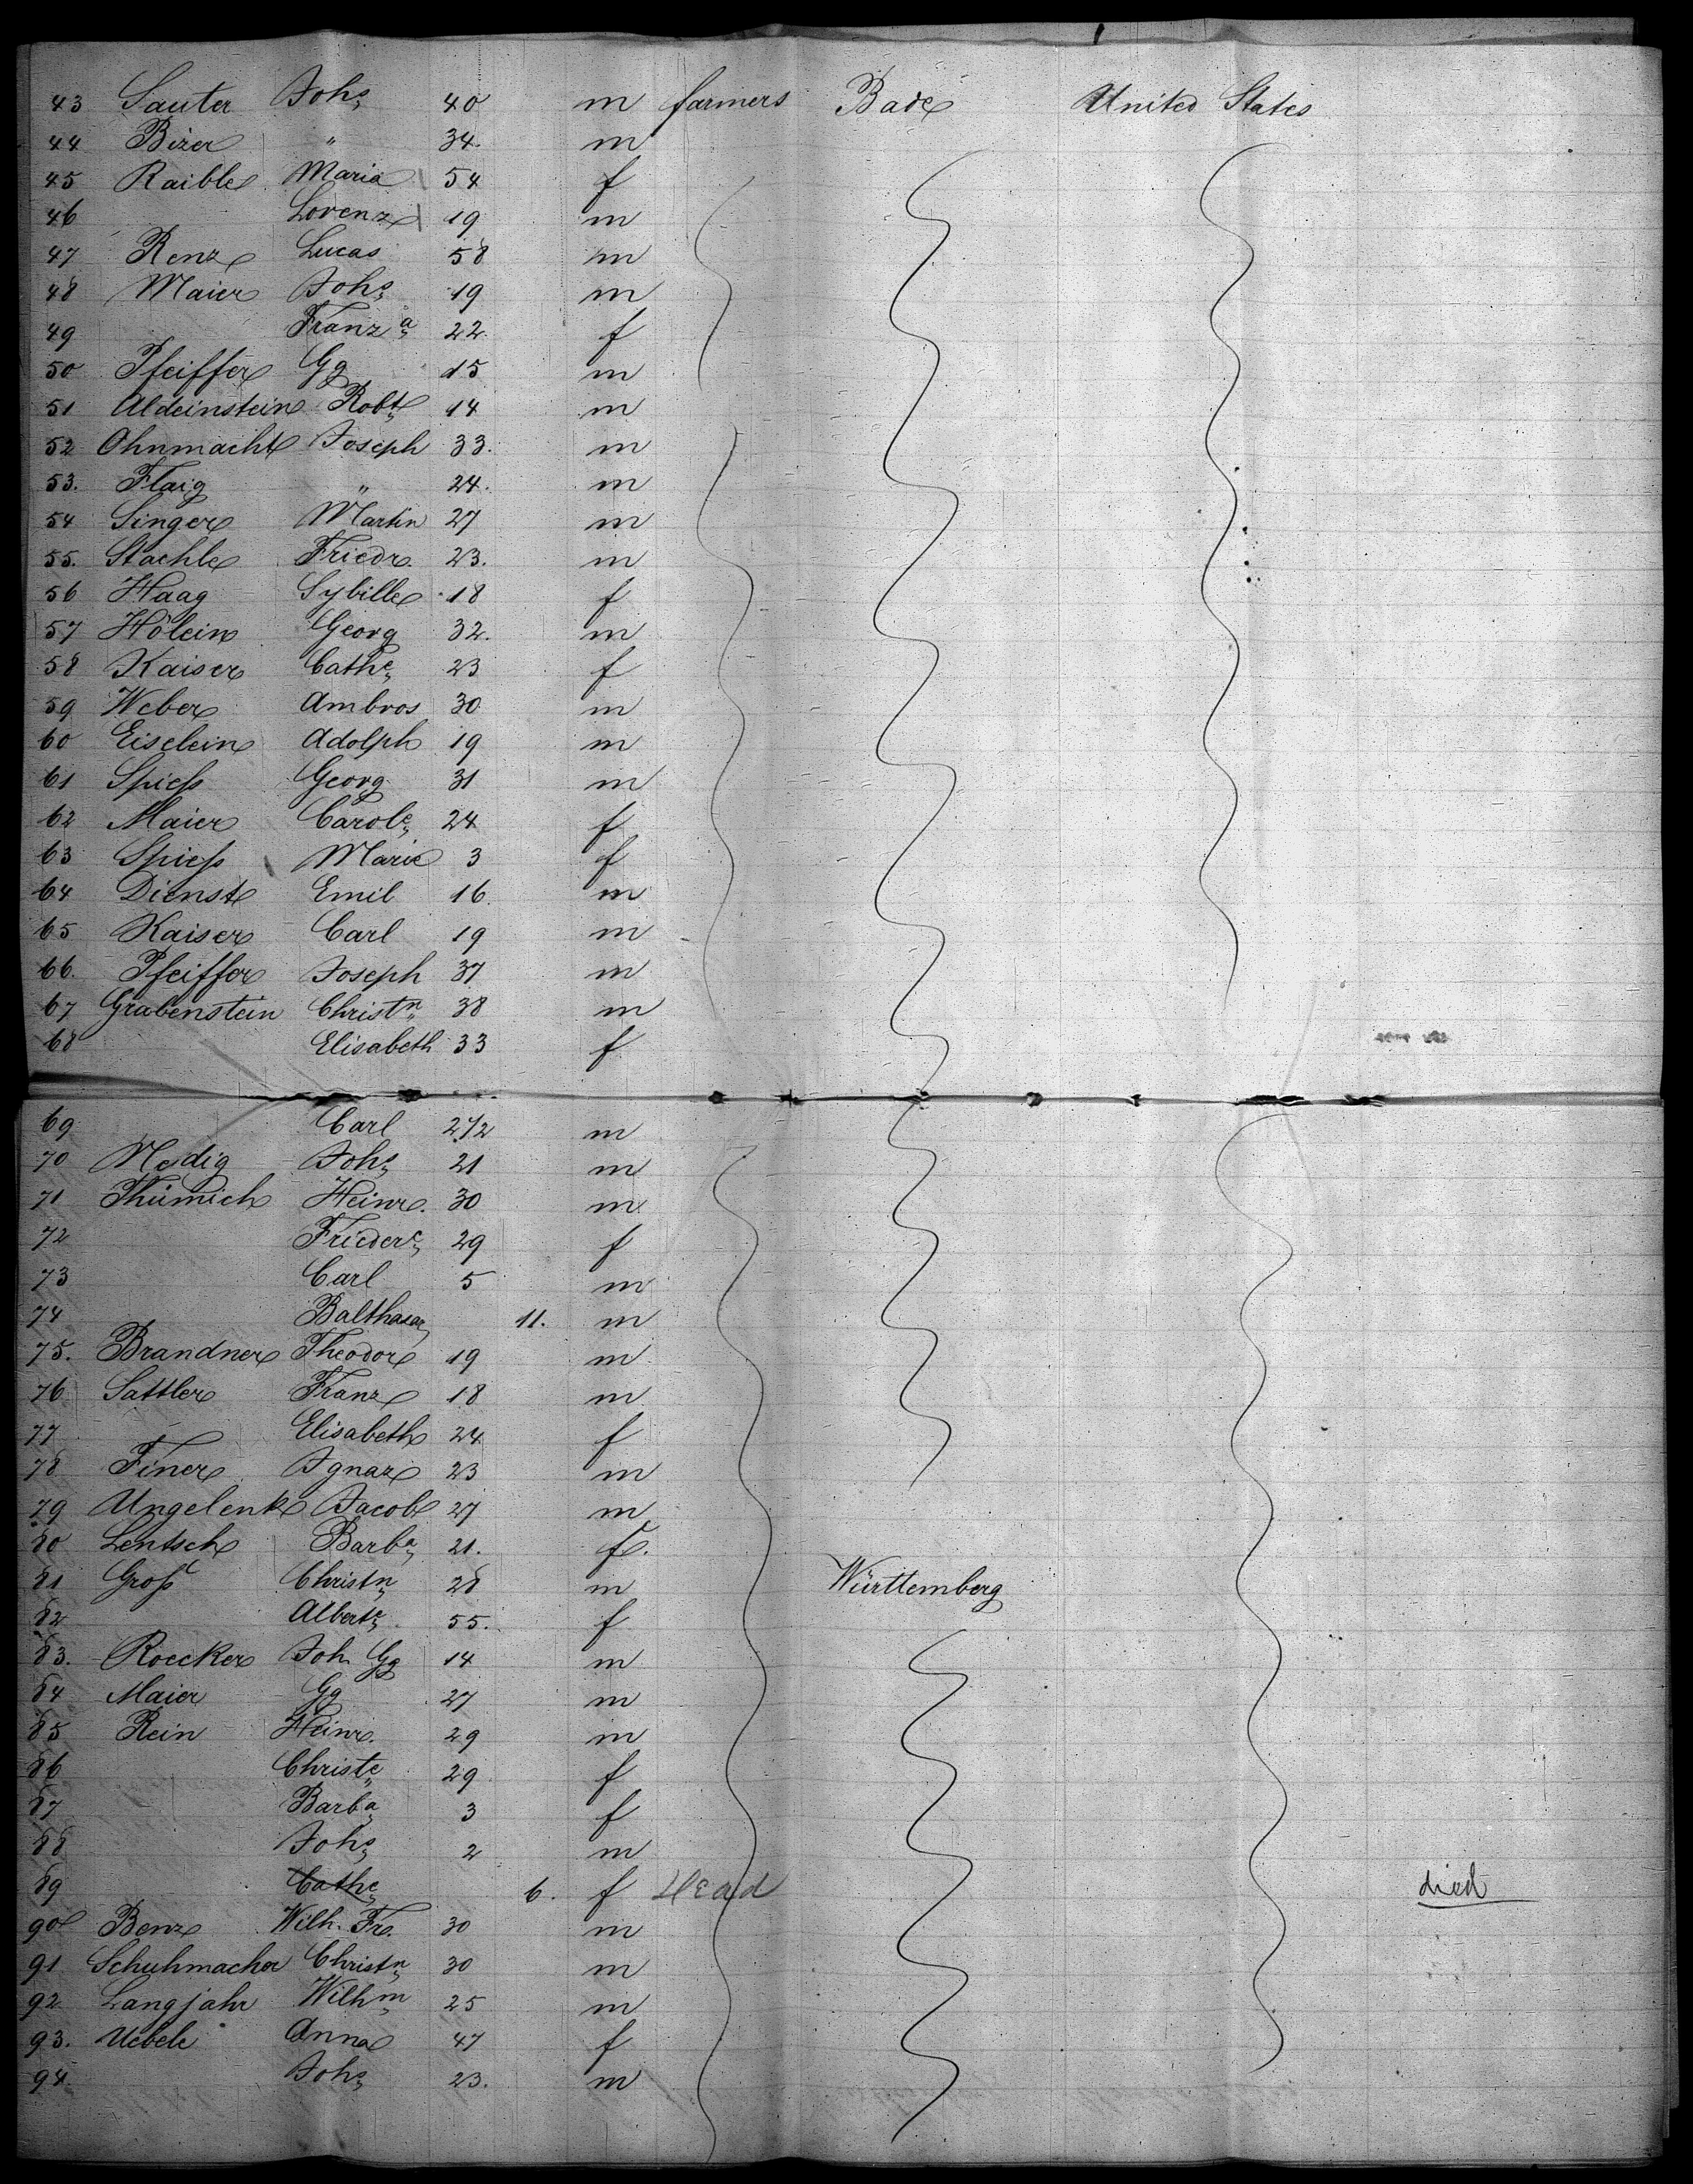 43 Sauter Johs 40 m farmers Bade United States
44 Bizer " 34. m
45 Raible Maria 54 f
46 Lorenz 19 m
47 Renz Lucas 58 m
48 Maier Johs 19 m
49 Franza 22. f
50 Pfeiffer Gg 15 m
51 Aldeinstein Robt 14 m
52 Ohnmacht Joseph 33. m
53. Flaig " 24. m
54 Singer Martin 27 m
55. Staehle Friedr. 23. m
56 Haag Sybille 18 f
57 Hölein Georg 32. m
58 Kaiser Cathe 23 f
59 Weber Ambros 30 m
60 Eiselein Adolph 19 m
61 Spieß Georg 31 m
62 Maier Carole 24 f
63 Spieß Marie 3 f
64 Dienst Emil 16 m
65 Kaiser Carl 19 m
66. Pfeiffer Joseph 37 m
67 Grabenstein Christn 38 m
68 Elisabeth 33 f
69 Carl 2 1/2 m
70 Medig Johs 21 m
71 Thümich Heinr. 30 m
72 Friedere 29 f
73 Carl 5 m
74 Balthasar 11. m
75. Brandner Theodor 19 m
76 Sattler Franz 18 m
77 Elisabeth 24 f
78 Finer Ignaz 23 m
79 Ungelenk Jacob 27 m
80 Lentsch Barba 21. f.
81 Groß Christn 28 m Württemberg
82 Alberte 55. f
83. Roecker Joh Gg 14 m
84 Maier Gg 27 m
85 Rein Heinr. 29 m
86 Christe 29 f
87 Barba 3 f
88 Johs 2 m
89 Cathe 6. f Dead died
90 Benz Wilh. Fr. 30 m
91 Schuhmacher Christn 30 m
92 Langjahr Wilhm 25 m
93. Uebele Anna 47 f
94 Johs 23. m